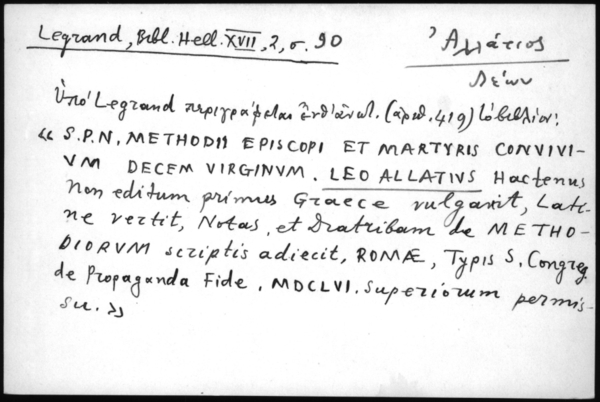 Legrand, Bibl. Hell. XVII, 2, σ. 90
Ἀλλάτιος
Λέων
Ὑπὸ Legrand περιγράφεται ἐνθ' ἀνωτ. (ἀριθ. 419) τὸ βιβλίον:
« S.P.N. METHODII EPISCOPI ET MARTYRIS CONVIVI-
VM DECEM VIRGINVM. LEO ALLATIVS Hactenus
Non editum primus Graece vulgavit, Lati-
ne vertit, Notas, et Diatribam de METHO-
DIORVM scriptis adiecit, ROMÆ, Typis S. Congreg.
de Propaganda Fide. MDCLVI. Superiorum permis-
su. »